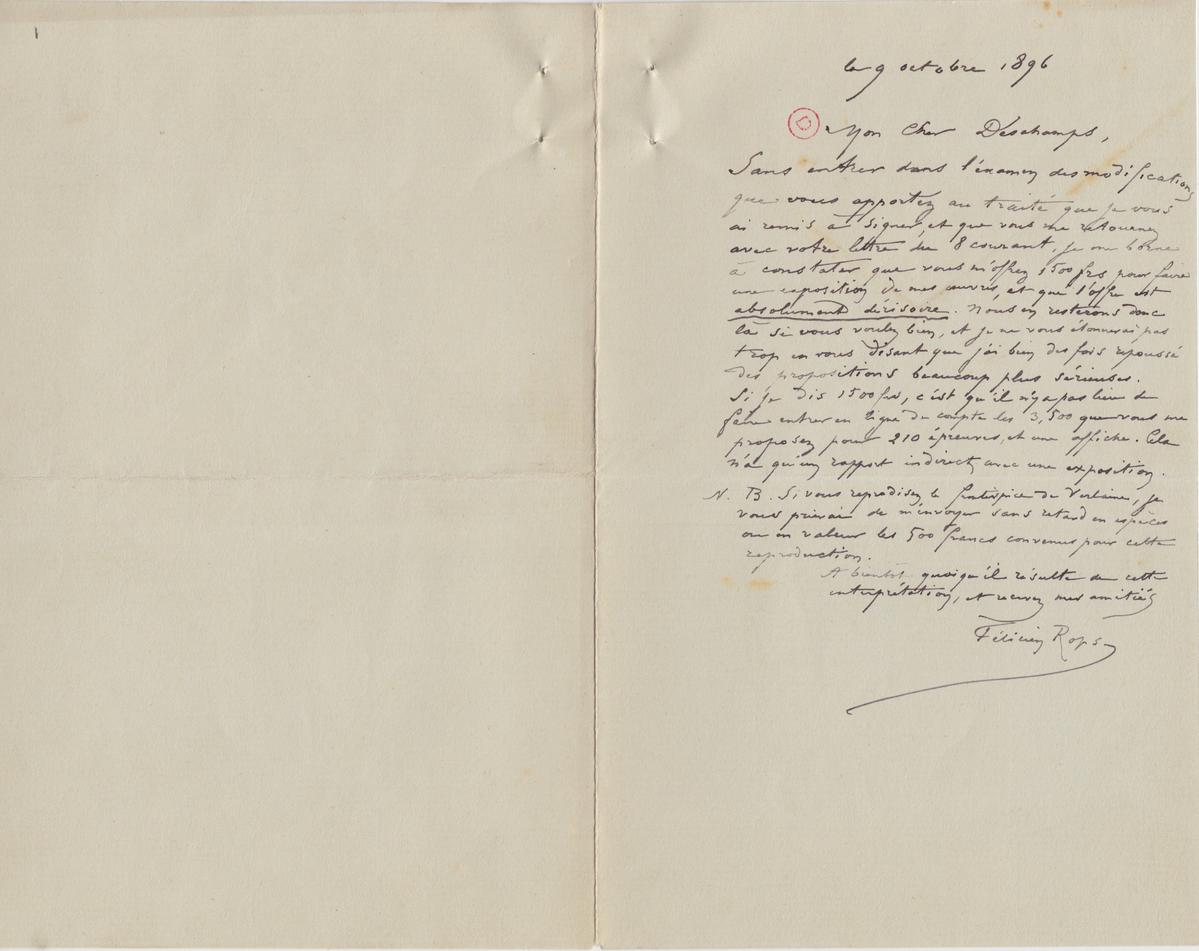 le 9 octobre 1896
D
Mon Cher Deschamps,
Sans entrer dans l'examen des modifications
que vous apportez au traité que je vous
ai remis à signer, et que vous me retournez
avec votre lettre du 8 courant, je me borne
à constater que vous m'offrez 1500 frs pour faire
une exposition de mes œuvres, et que l'offre est
absolument dérisoire. Nous en resterons donc
là si vous voulez bien, et je ne vous étonnerai pas
trop en vous disant que j'ai bien des fois repoussé
des propositions beaucoup plus sérieuses.
Si je dis 1500 frs, c'est qu'il n'y a pas lieu de
faire entrer en ligne de compte les 3,500 que vous me
proposez pour 210 épreuves, et une affiche. Cela
n'a qu'un rapport indirect avec une exposition.
N. B. Si vous reprodisez le frontispice de Verlaine, je
vous prierai de m'envoyer sans retard en espèces
ou en valeur les 500 francs convenus pour cette
reproduction.
A bientôt quoiqu'il résulte de cette
interprétation, et recevez mes amitiés
Félicien Rops